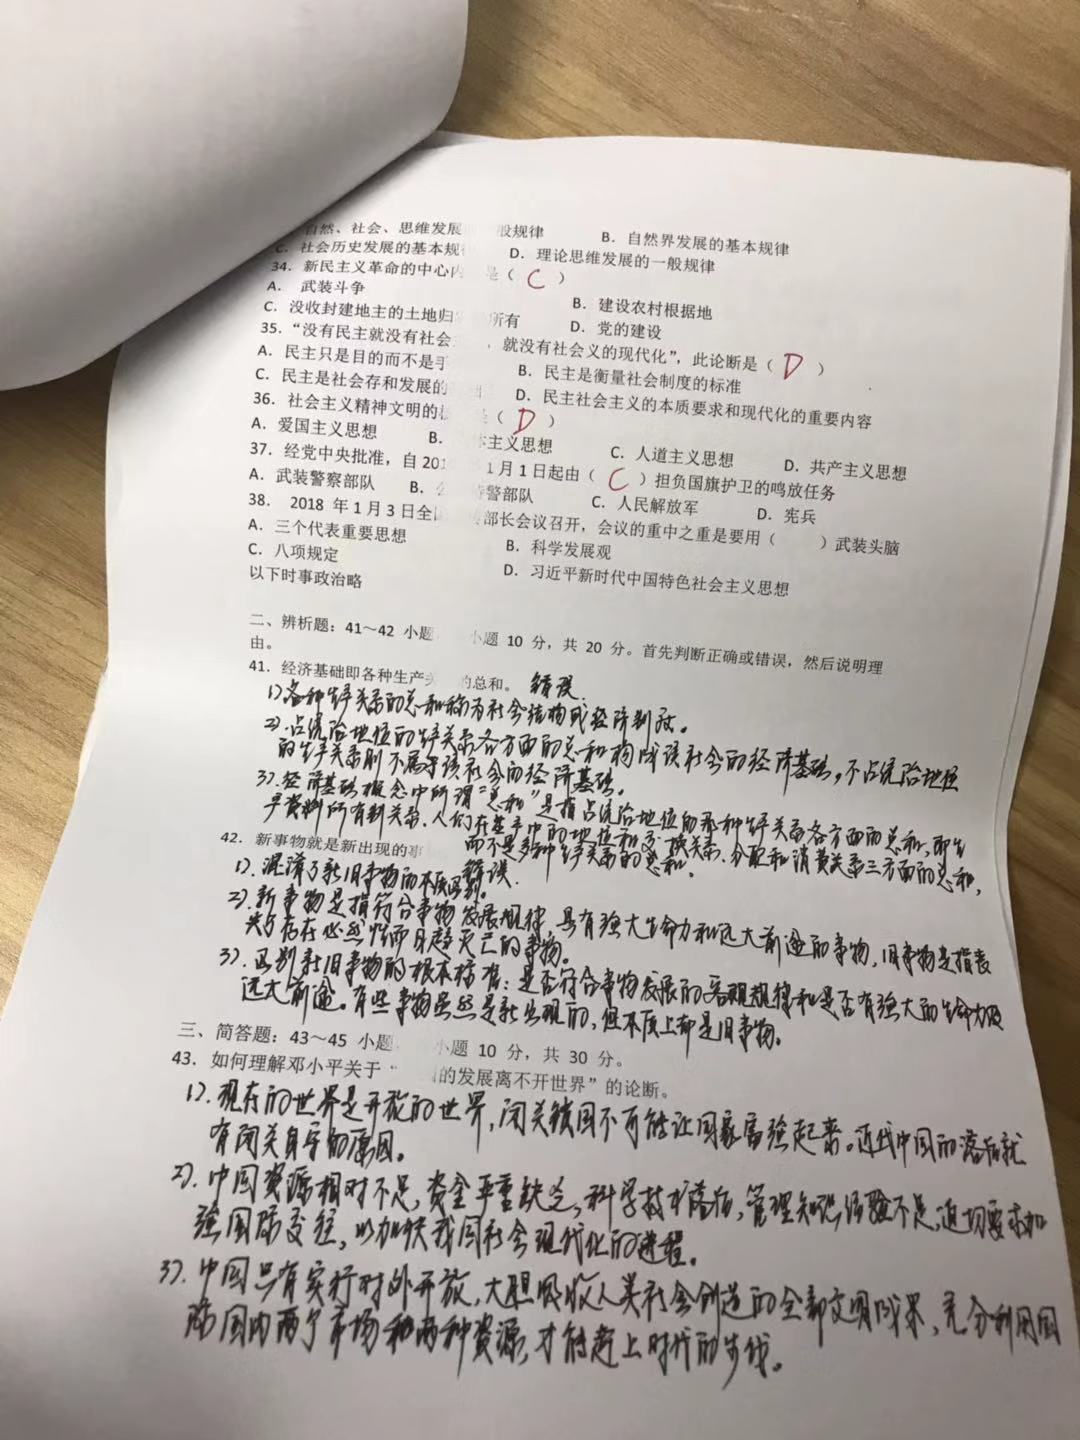 自然、社会、思维发展 般规律 B. 自然界发展的基本规律
C. 社会历史发展的基本规 D. 理论思维发展的一般规律
34. 新民主义革命的中心内 是( C )
A. 武装斗争 B. 建设农村根据地
C. 没收封建地主的土地归 所有 D. 党的建设
35. “没有民主就没有社会 , 就没有社会义的现代化”, 此论断是( D )
A. 民主只是目的而不是手 B. 民主是衡量社会制度的标准
C. 民主是社会存和发展的 D. 民主社会主义的本质要求和现代化的重要内容
36. 社会主义精神文明的 是( D )
A. 爱国主义思想 B. 本主义思想 C. 人道主义思想 D. 共产主义思想
37. 经党中央批准, 自 201 1 月 1 日起由( C )担负国旗护卫的鸣放任务
A. 武装警察部队 B. 警部队 C. 人民解放军 D. 宪兵
38. 2018 年 1 月 3 日全 部长会议召开, 会议的重中之重是要用( )武装头脑
A. 三个代表重要思想 B. 科学发展观
C. 八项规定 D. 习近平新时代中国特色社会主义思想
以下时事政治略
二、辨析题: 41~42 小题 小题 10 分, 共 20 分。首先判断正确或错误, 然后说明理
由。
41. 经济基础即各种生产关 的总和。 错误.
1). 各种生产关系的总和称为社会结构或经济制度。
2). 占统治地位的生产关系各方面的总和构成该社会的经济基础, 不占统治地位
的生产关系则不属于该社会的经济基础。
3). 经济基础概念中所谓“总和”是指占统治地位的那种生产关系各方面的总和, 即生
产资料所有制关系、人们在生产中的地位和交换关系、分配和消费关系三方面的总和,
而不是多种生产关系的总和.
42. 新事物就是新出现的事 错误.
1). 混淆了新旧事物的本质区别.
2). 新事物是指符合事物发展规律, 具有强大生命力和远大前途的事物, 旧事物是指丧
失存在必然性而日趋灭亡的事物。
3). 区别新旧事物的根本标准: 是否符合事物发展的客观规律和是否有强大的生命力及
远大前途。有些事物虽然是新出现的, 但本质上却是旧事物。
三、简答题: 43~45 小题 小题 10 分, 共 30 分。
43. 如何理解邓小平关于“ 的发展离不开世界”的论断。
1). 现在的世界是开放的世界, 闭关锁国不可能让国家富强起来。近代中国的落后就
有闭关自守的原因。
2). 中国资源相对不足, 资金严重缺乏, 科学技术落后, 管理知识经验不足, 迫切要求加
强国际交往, 以加快我国社会现代化的进程。
3). 中国只有实行对外开放, 大胆吸收人类社会创造的全部文明成果、充分利用国
际国内两个市场和两种资源, 才能赶上时代的步伐。